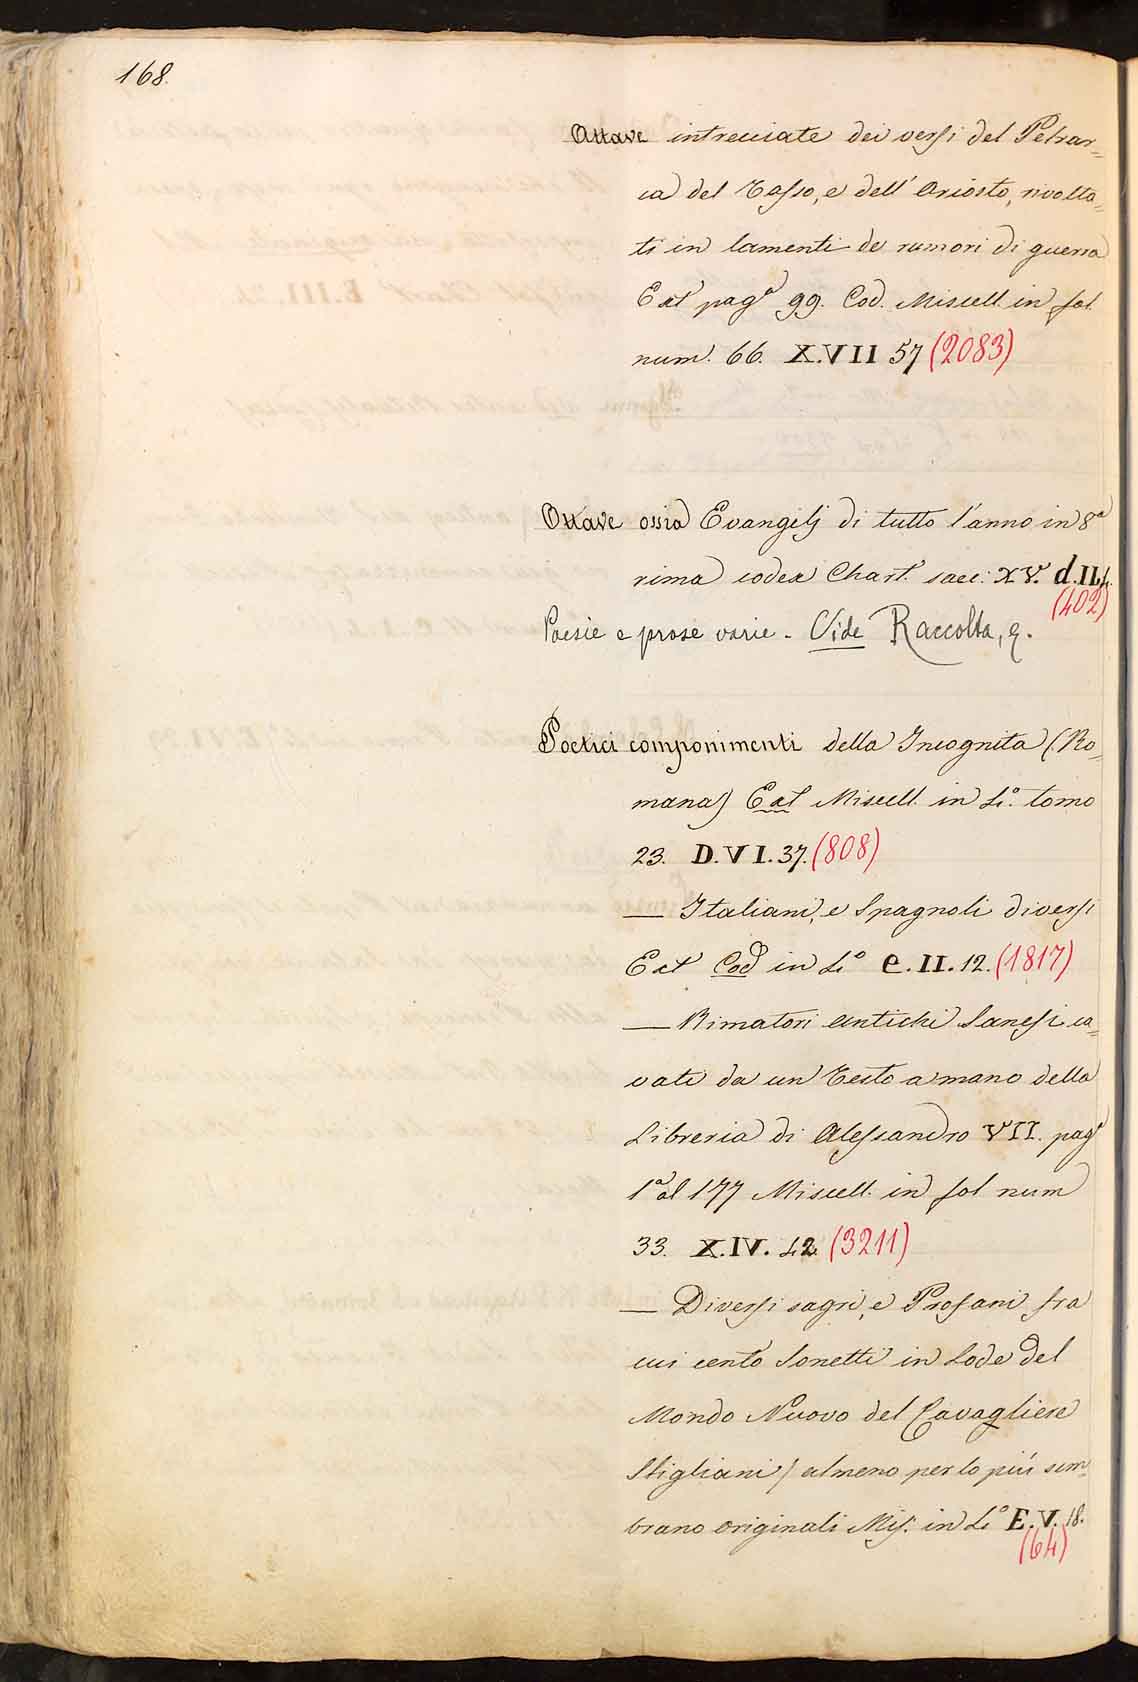 168.
Ottave intrecciate dei versi del Petrar=
ca del Tasso, e dell' Ariosto, rivolta=
ti in lamenti de rumori di guerra
Ext pagª 99. Cod. Miscell. in fol.
num. 66. X.VII 57 (2083)
Ottave ossia Evangelj di tutto l'anno in 8ª
rima codex Chart. saec: XV. d.II.4.
(402)
Poesie e prose varie - Vide Raccolta, &.
Poetici componimenti della Incognita (Ro=
mana) Ext Miscell. in 4º. tomo
23. D.VI.37. (808)
— Italiani, e Spagnoli diversi
Ext Cod in 4º e.II.12. (1817)
— Rimatori antichi Sanesi ca=
vati da un Testo a mano della
Libreria di Alessandro VII. pagª
1ª al 177 Miscell. in fol num
33. X.IV. 42 (3211)
— Diversi sagri, e Profani fra
cui cento Sonetti in Lode del
Mondo Nuovo del Cavagliere
Stigliani) almeno per lo più sem=
brano originali Mis. in 4º E.V. 18.
(64)